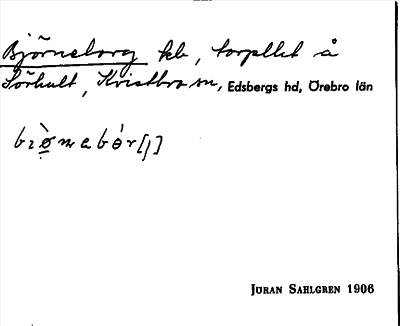 Björneborg hb, torpllht å
Sörhult, Kvistbro sn, Edsbergs hd, Örebro län
JÖRAN SAHLGREN 1906